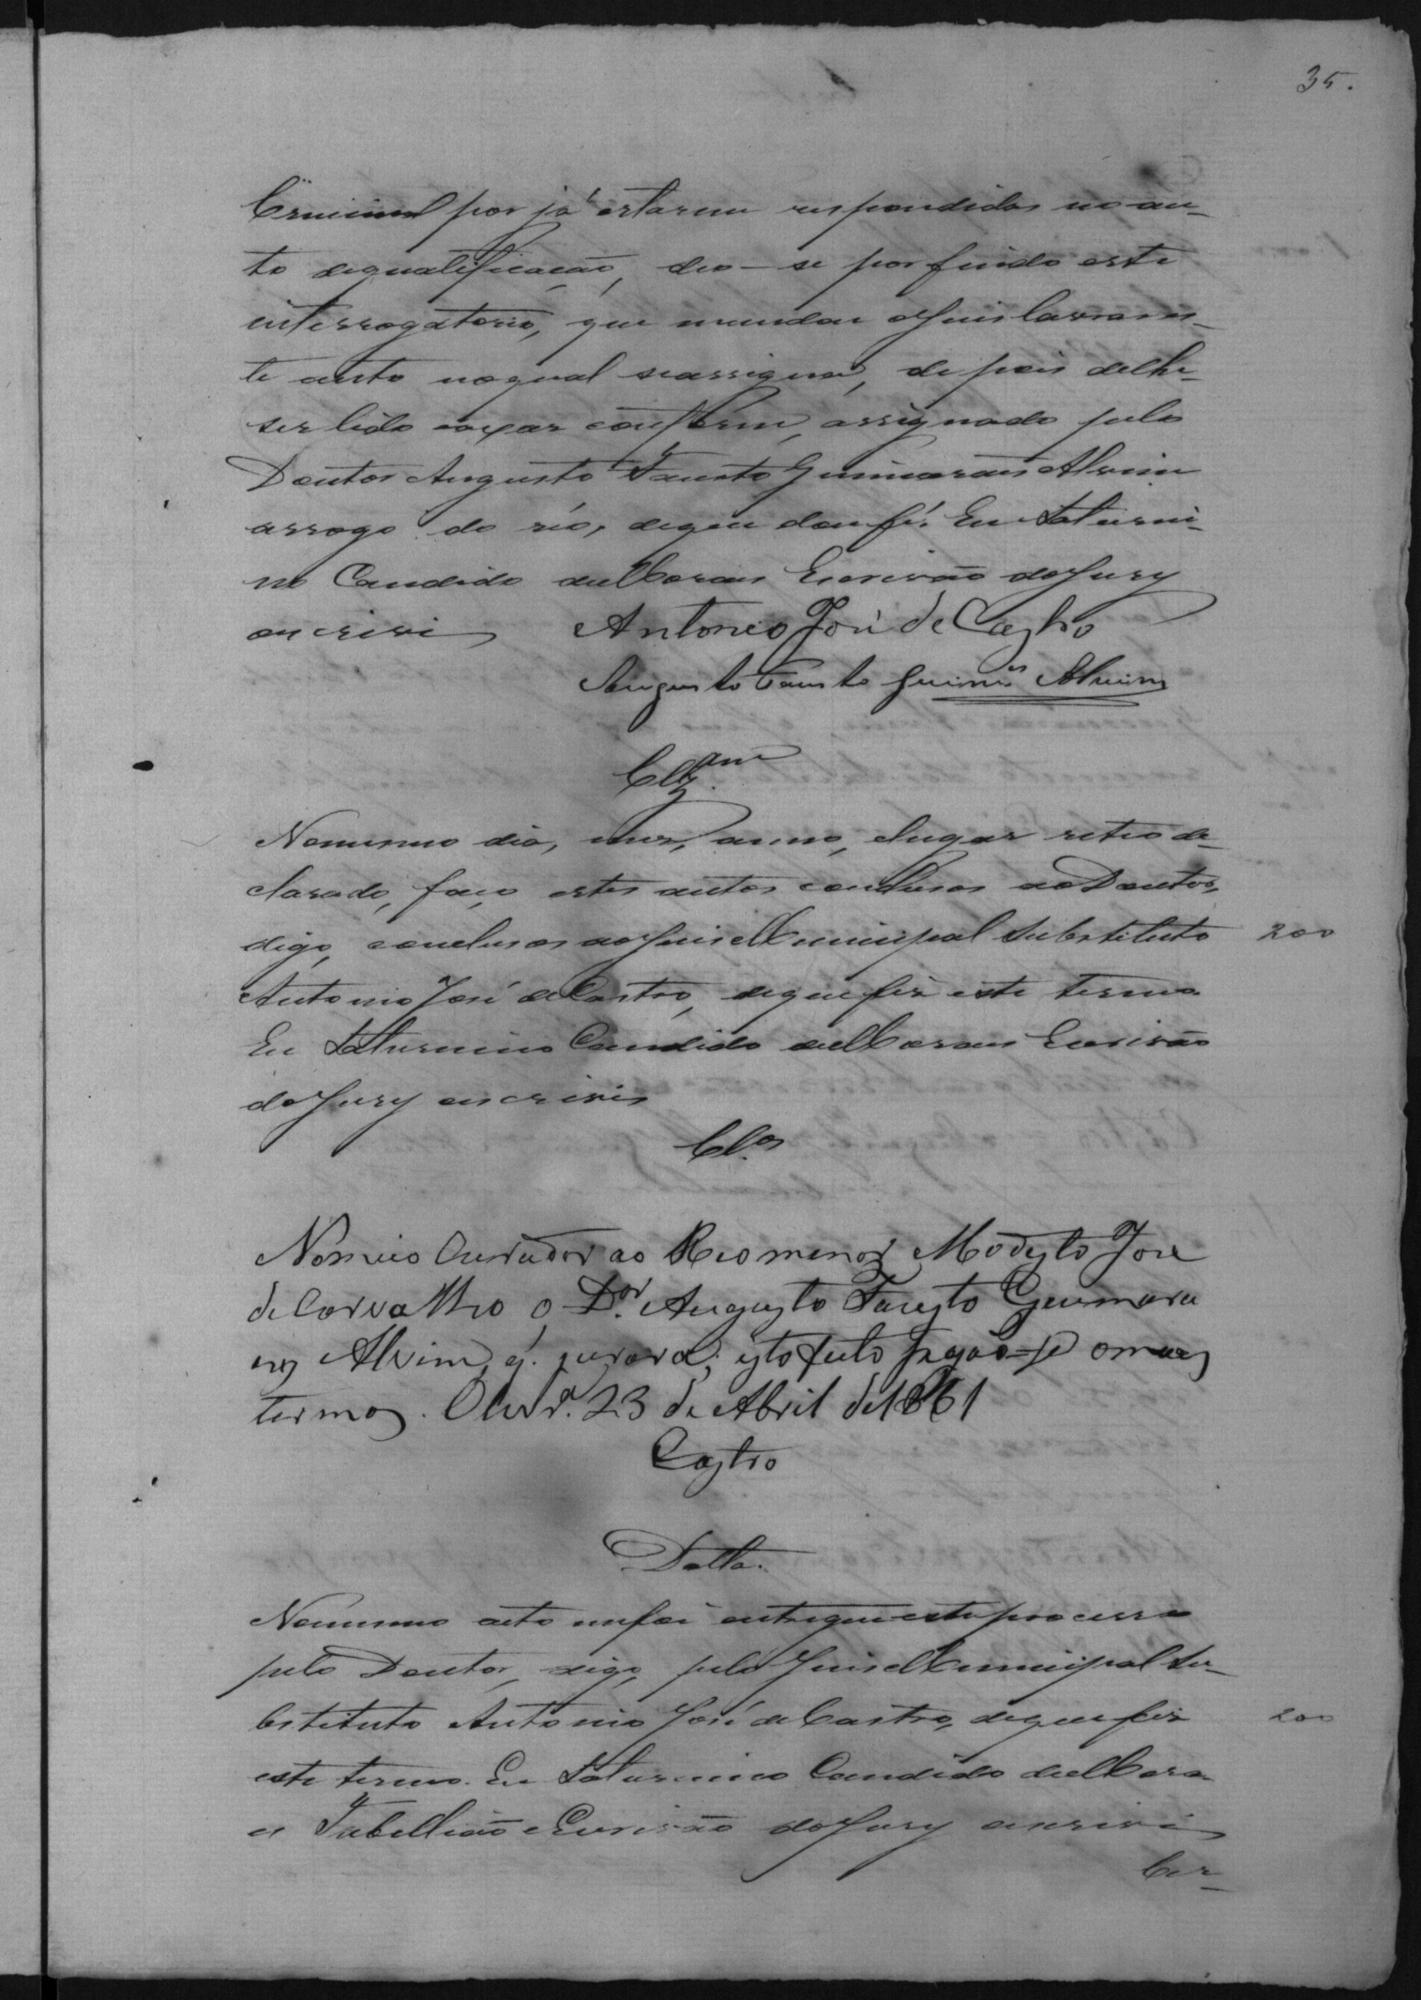 35.
Criminal por já estarem respondidas no au-
to dequalificação, deo-se porfindo este
interrogatorio, que mandou oJuis lavrar es-
te auto noqual seassigna, depois delhe
ser lido eoxar conforme, assignado pelo
Doutor Augusto Fausto Guimarães Alvim
arrogo do réo, dequi doufé. Eu Saturni-
no Candido deMoraes Escrivão doJury
oescrevi
Antonio José de Castro
Augusto Fausto Guimes Alvim
Clzam
Nomesmo dia, mes, anno, elugar retro de-
clarado, faço estes autos conclusos aoDoutor,
digo, conclusos aoJuis Municipal Substituto
200
Antonio José deCastro, dequefis este termo
Eu Saturnino Candido deMoraes Escrivão
doJury oescrevi
Clos
Nomeio Curador ao Reo menor Modesto Jose
de Carvalho o Dor Augusto Fausto Guimara
es Alvim, q. jurará; isto feito fação-se os mais
termos. Olivra. 23 de Abril de 1861
Castro
Datta.
Nomesmo acto mefoi entregueeste processo
pelo Doutor, digo, pelo Juis Municipal Su-
bstituto Antonio José deCastro, dequefis
200
este termo. Eu Saturnino Candido deMora
es Tabellião eEscrivão doJury oescrevi
Cer-